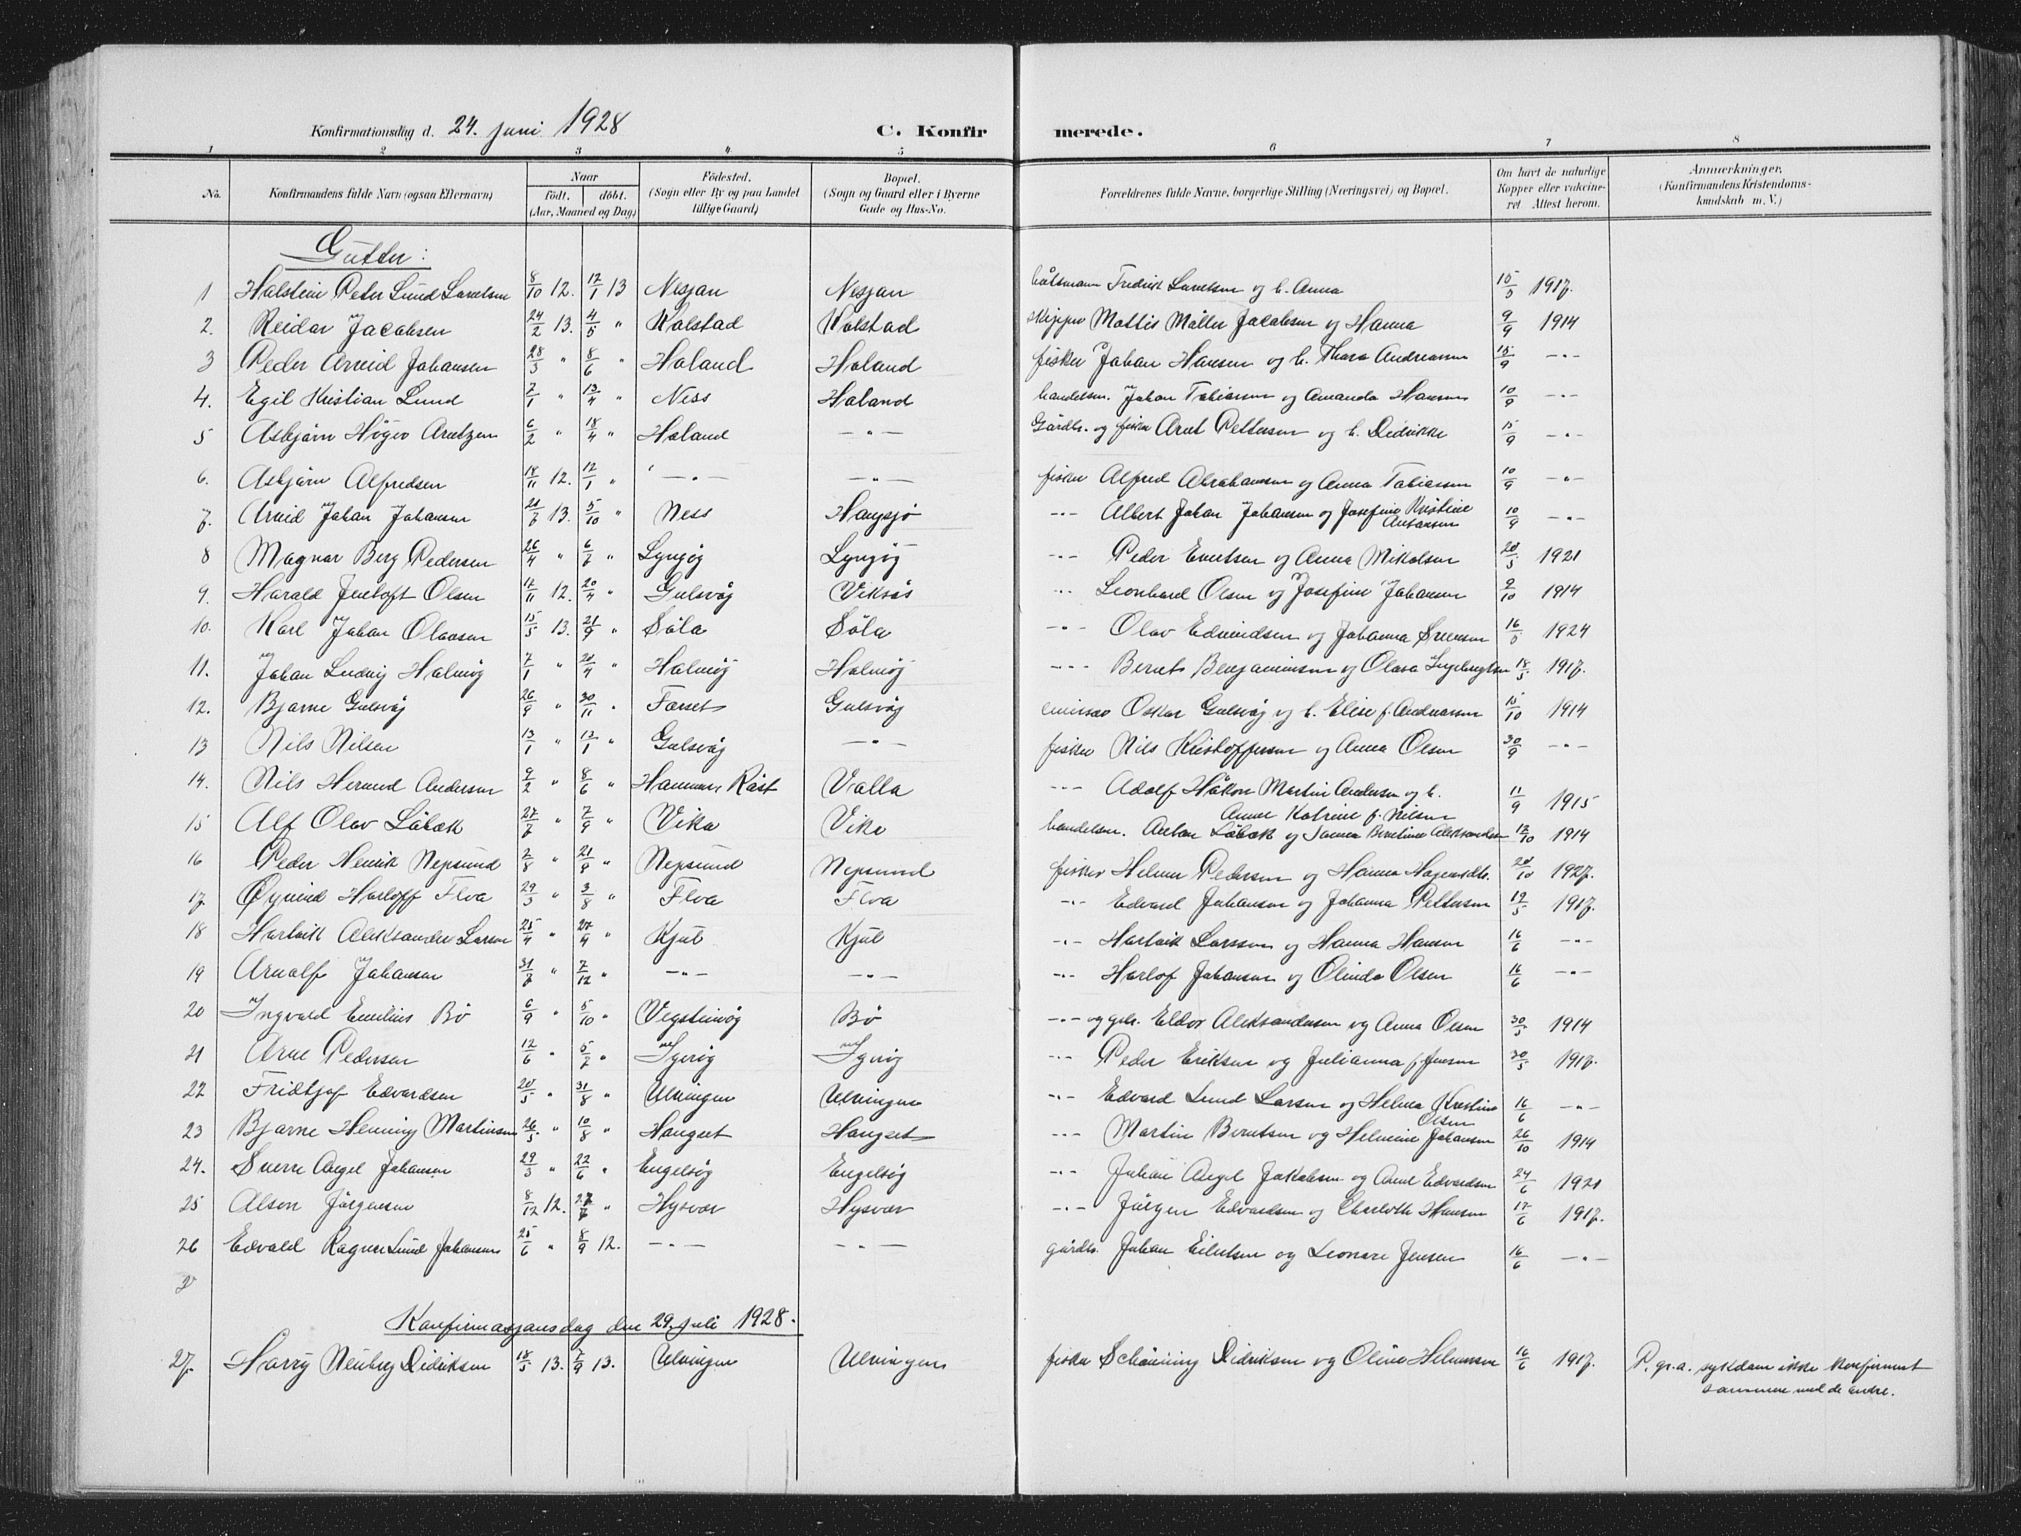 Konfirmationsdag d. 24. juni 1928 C. Konfirmerede.
1 2 3 4 5 6 7 8
No. Konfirmandens fulde Navn (ogsaa Efternavn) Naar født. døbt. (Aar, Maaned og Dag) Fødested. (Sogn eller By og paa Landet tillige Gaard) Bopæl. (Sogn og Gaard eller i Byerne Gade og Hus-No. Forældrenes fulde Navne, borgerlige Stilling (Næringsvei) og Bopæl. Om havt de naturlige Kopper eller vakcineret Attest herom. Anmerkninger, (Konfirmandens Kristendomskundskab m. V.)
Gutter:
1 Halstein Peter Lund Lorentsen 8/10 12. 12/1 13 Nesjan Nesjan båtsmann Fredrik Lorentsen og h. Anna 15/5 1917.
2. Reidar Jacobsen 24/2 13. 4/5 " Kolstad Kolstad skipper Mattis Møller Jacobsen og Hanna 9/9 1914
3 Peder Arvid Johansen 28/3 " 8/6 " Haland Haland fisker Johan Hansen og h. Thora Andreassen 15/9 -"-
4. Egil Kristian Lund 7/1 " 13/4 " Ness Haland handelsm. Johan Tobiassen og Amanda Hansen 10/9 -"-
5 Asbjørn Høger Arntzen 6/2 " 18/4 " Haland -"- Gårdbr. og fisker Arnt Pettersen og h. Didrikke 15/9 -"-
6. Asbjørn Alfredsen 18/11 12. 12/1 " -"- -"- fisker Alfred Abrahamsen og Anna Tobiassen 10/9 -"-
7. Arvid Johan Johansen 20/7 13. 5/10 " Ness Hongsjø -"- Albert Johan Johansen og Josefine Kristine Antonsen 10/9 -"-
8 Magnar Berg Pedersen 26/4 " 6/7 " Lyngøy Lyngøy -"- Peder Evertsen og Anna Mikalsen 20/5 1921
9. Harald Jentoft Olsen 12/11 12. 20/4 " Gulsvåg Viksås -"- Leonhard Olsen og Josefine Johansen 2/10 1914
10. Karl Johan Olaisen 15/5 13. 21/9 " Søla Søla -"- Olav Edvindsen og Johanna Svensen 16/5 1924
11. Johan Ludvig Halmøy 7/1 " 20/4 " Halmøy Halmøy -"- Bernt Benjaminsen og Olava Ingebrigtsen 18/5 1917.
12. Bjarne Gulsvåg 26/9 " 30/11 " Forset Gulsvåg emissær Oskar Gulsvåg og h. Elise f. Andreassen 15/10 1914
13 Nils Nilsen 13/1 " 12/1 " Gulsvåg -"- fisker Nils Kristoffersen og Anna Olsen 30/9 -"-
14. Nils Hermod Andersen 9/2 " 8/6 " Hammer, Røst Valla -"- Adolf Håkon Martin Andersen og h. Anne Katrine f. Nilsen 11/9 1915
15 Alf Olav Løbæk 27/7 " 7/9 " Vika Vika handelsm. Anton Løbæk og Janna Berntine Aleksandersen 12/10 1914
16 Peder Henrik Nepsund 2/8 " 21/9 " Nepsund Nepsund fisker Helmer Pedersen og Hanna Hagensdtr. 20/10 1927.
17. Øyvind Harloff Flva 29/3 " 3/8 " Flva Flva -"- Edvard Johansen og Johanna Pettersen 19/5 1917.
18 Hartvik Aleksander Larsen 25/4 " 27/4 " Kjul Kjul -"- Hartvik Larssen og Hanna Hansen 16/6 -"-
19 Arnolf Johansen 31/7 " 7/12 " -"- -"- -"- Harlof Johansen og Olinda Olsen 16/6 -"-
20 Ingvald Emilius Bø 6/9 " 5/10 " Vegsteinøy Bø -"- og gdr. Eldor Aleksandersen og Anna Olsen 30/5 1914
21 Arne Pedersen 12/6 " 5/7 " Igerøy Igerøy -"- Peder Eriksen og Julianna f. Jensen 30/5 1917.
22 Fridtjof Edvardsen 20/5 " 31/8 " Ulvingen Ulvingen -"- Edvard Lund Larsen og Helma Kristine Olsen 16/6 -"-
23 Bjarne Henning Martinsen 26/5 " 10/8 " Hongset Hongset -"- Martin Berntsen og Helmine Johansen 26/10 1914
24. Sverre Angel Johansen 29/3 " 22/6 " Engelsøy Engelsøy -"- Johan Angel Jakobsen og Anne Edvardsen 24/6 1921
25 Alson Jørgensen 8/12 12. 27/7 " Hysvær Hysvær -"- Jørgen Edvardsen og Charlotte Hansen 17/6 1917.
26 Edvald Ragner Lund Johansen 25/6 " 8/9 12. -"- -"- gårdbr. Johan Eilertsen og Leonore Jensen 16/6 -"-
Konfirmasjonsdag den 29. juli 1928.
27. Harry Neuberg Didriksen 18/5 13. 7/9 13. Ulvingen Ulvingen fisker Schønning Didriksen og Oline Helmersen 16/6 1917. P. gr. a. sykdom ikke konfirmert sammen med de andre.